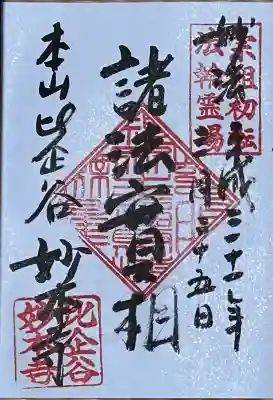 宗祖初転
法輪霊場
妙法
平成三十一年
三月二十五日
諸法實相
本山比企谷 妙本寺
比企谷
妙本寺